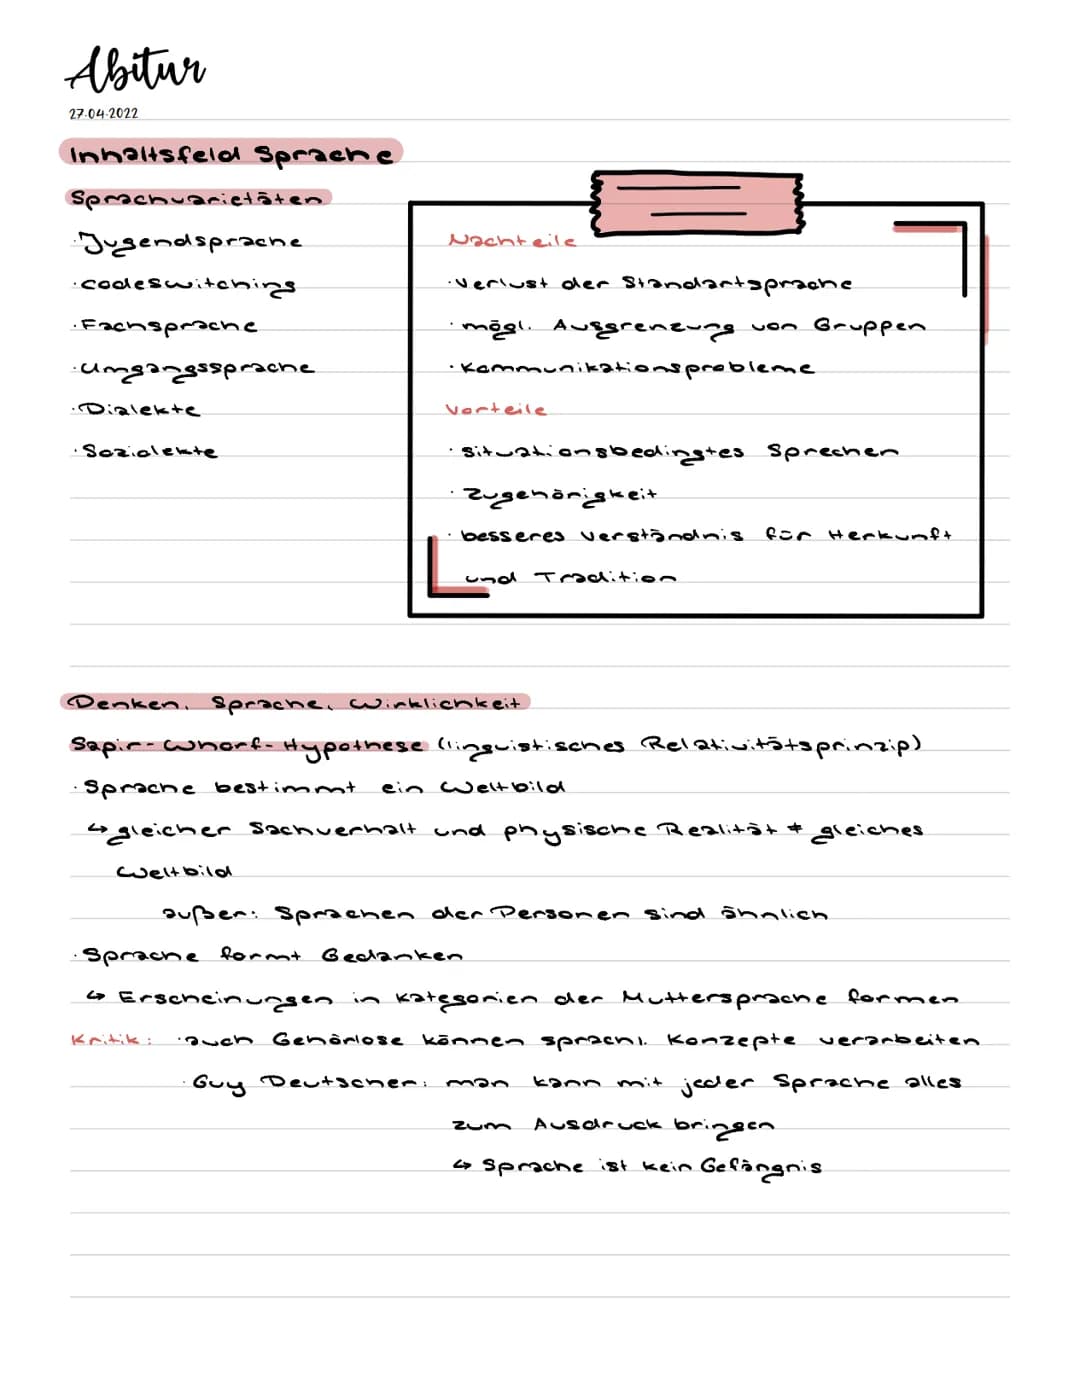 Abitur
27.04.2022
Inhaltsfeld Sprache
Sprachvarietäten
·Jugendsprache
·codeswitching
·Fachsprache
·Umgangssprache
·Dialekte
·Soziolekte
Nachteile
·Verlust der Standartsprache
·mögl. Ausgrenzung von Gruppen
·Kommunikationsprobleme
Vorteile
·situationsbedingtes Sprechen
·Zugehörigkeit
·besseres Verständnis für Herkunft
und Tradition
Denken, Sprache, Wirklichkeit
Sapir-Whorf-Hypothese (linguistisches Relativitätsprinzip)
·Sprache bestimmt ein Weltbild
↳ gleicher Sachverhalt und physische Realität ≠ gleiches
Weltbild
außer: Sprachen der Personen sind ähnlich
·Sprache formt Gedanken
↳ Erscheinungen in Kategorien der Muttersprache formen
Kritik: ·auch Gehörlose können sprachl. Konzepte verarbeiten
·Guy Deutscher: man kann mit jeder Sprache alles
zum Ausdruck bringen
↳ Sprache ist kein Gefängnis